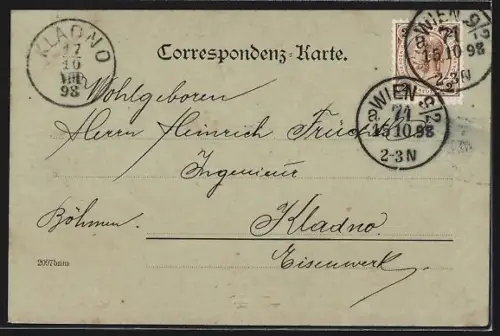 KLADNO
17
10
98
Correspondenz-Karte.
WIEN 9/2
71
a
15.10.98
2-3N
WIEN 9/2
71
a
15.10.98
2-3N
Wohlgeboren
Herrn Heinrich
Ingenieur
Böhmen. Kladno.
Eisenwerk